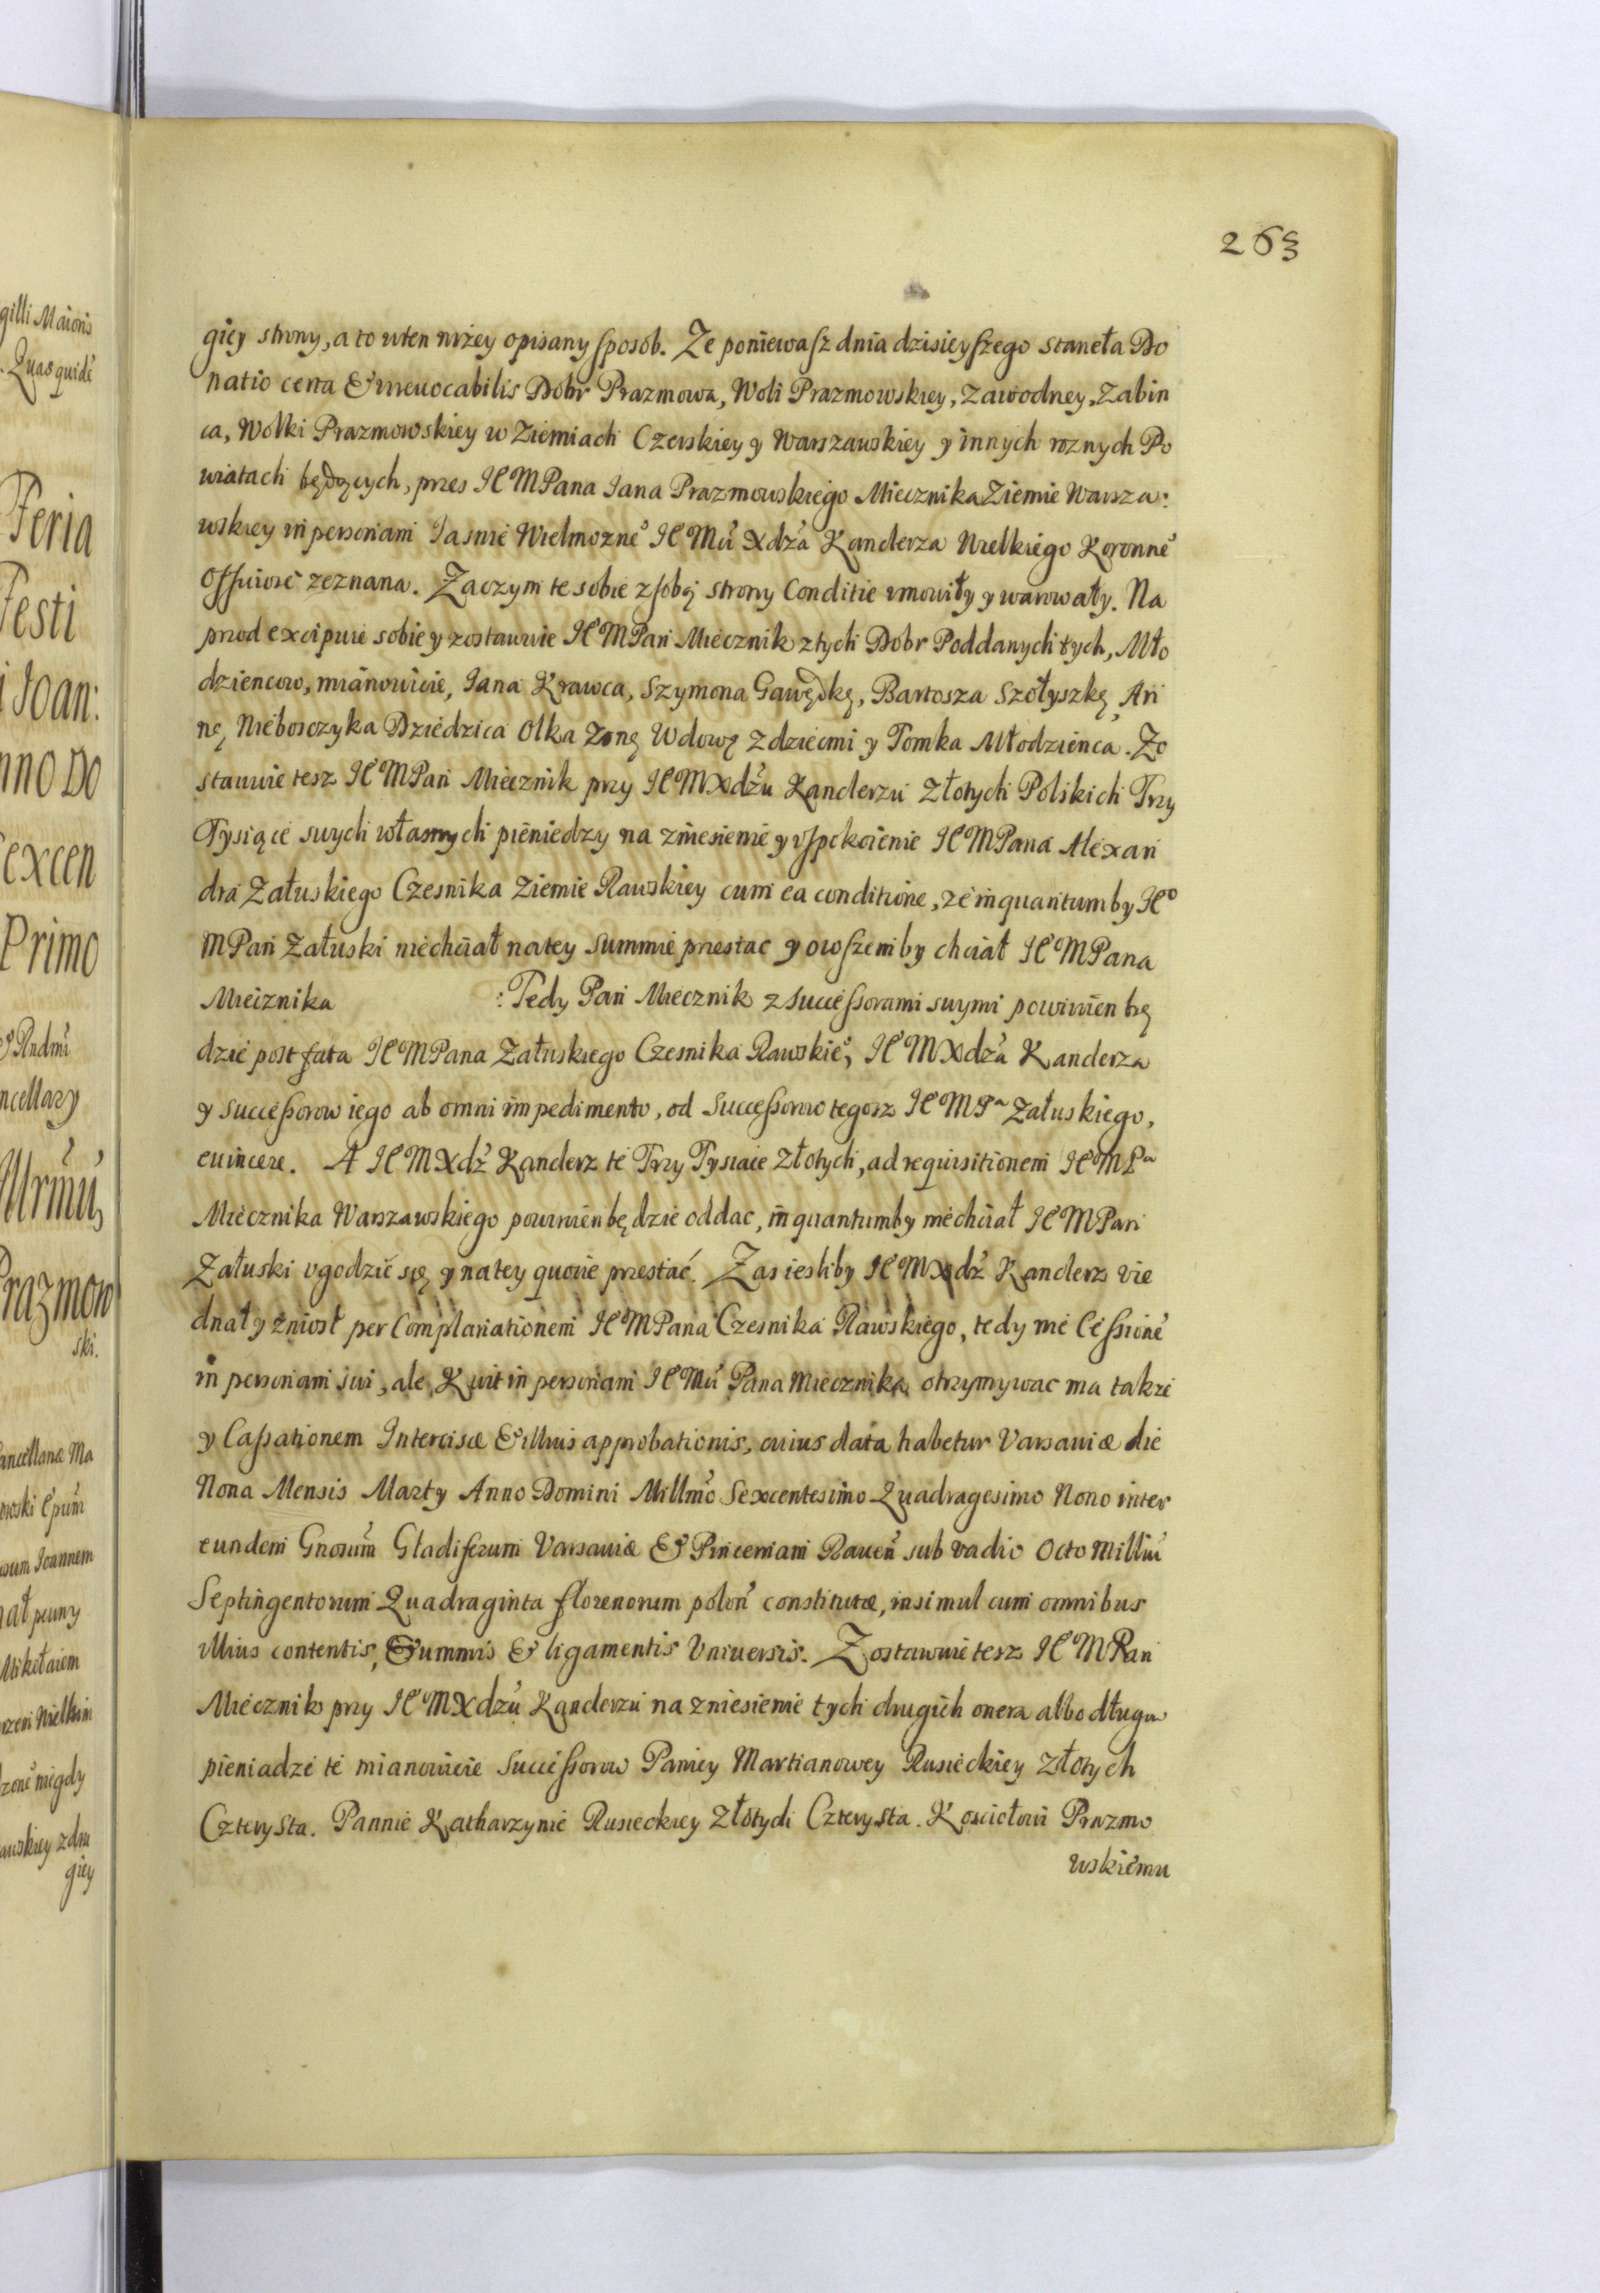 263
giey strony, a to wten niżey opisany sposob. Ze poniewasz dnia dzisieyszego staneła Do
natio certa & irreuocabilis Dobr Prazmowa, Woli Prazmowskiey, Zawodney, Zabin
ca, Wolki Prazmowskiey w Ziemiach Czerskiey y Warszawskiey y innych roznych Po
wiatach będących, przes JE MPana Jana Prazmowskiego Miecznika Ziemie Warsza:
wskiey in personam Jasnie Wielmozne° JE Mu Xdza Kanclerza Wielkiego Koronne°
zeznana. Zaczym te sobie z sobą strony Conditie vmowiły y warowały. Na
przod excipuie sobie y zostawuie JE MPan Miecznik z tych Dobr Poddanych tych, Mło
dziencow, mianowicie, Jana Krawca, Szymona Gawędkę, Bartosza Szołyszkę, An
nę Nieboszczyka Dziedzica Olka Zonę Wdowę z dziecmi y Tomka Młodzienca. Zo
stawuie tesz JE MPan Miecznik przy JE MXdzu Kanclerzu Złotych Polskich Trzy
Tysiące swych własnych pieniedzy na zniesienie y vspokoienie JE MPana Alexan
dra Załuskiego Czesnika Ziemie Rawskiey cum ea conditione, ze inquantumby JE°
MPan Załuski niechciał natey summie przestac y owszemby chciał JE MPana
Miecznika :Tedy Pan Miecznik z successorami swymi powinien bę
dzie post fata JE MPana Załuskiego Czesnika Rawskie°, JE MXdza Kanclerza
y successorow iego ab omni impedimento, od Successorow tegosz JE MPa Załuskiego,
euincere. A JE MXdz Kanclerz te Trzy Tysiace Złotych, ad requisitionem JE MPa
Miecznika Warszawskiego powinien będzie oddac, inquantumby niechciał JE MPan
Załuski vgodzić się y natey quocie przestać. Zas iesliby JE MXdz Kanclerz vie
dnał y zniosł per Complanationem JE MPana Czesnika Rawskiego, tedy nie Cessione
in personam sui, ale Kwit in personam JE Mu Pana Miecznika otrzymywac ma takze
y Cassationem Intercisæ & illius approbationis, cuius data habetur Varsauiæ die
Nona Mensis Marty Anno Domini Millmo Sexcentesimo Quadragesimo Nono inter
eundem Gnosum Gladiferum Varsauiæ & Pincernam Rauen sub vadio Octo Milliu
Septingentorum Quadraginta florenorum polon constitutæ, insimul cum omnibus
illius contentis, Summis & ligamentis Vniuersis. Zostawuie tesz JE MPan
Miecznik przy JE MXdzu Kanclerzu na zniesienie tych drugich onera albo długow
pieniadze te mianowicie Successorow Paniey Martianowey Rusieckiey Złotych
Czterysta. Pannie Katharzynie Rusieckiey Złotych Czterysta. Kosciołowi Prazmo
wskiemu